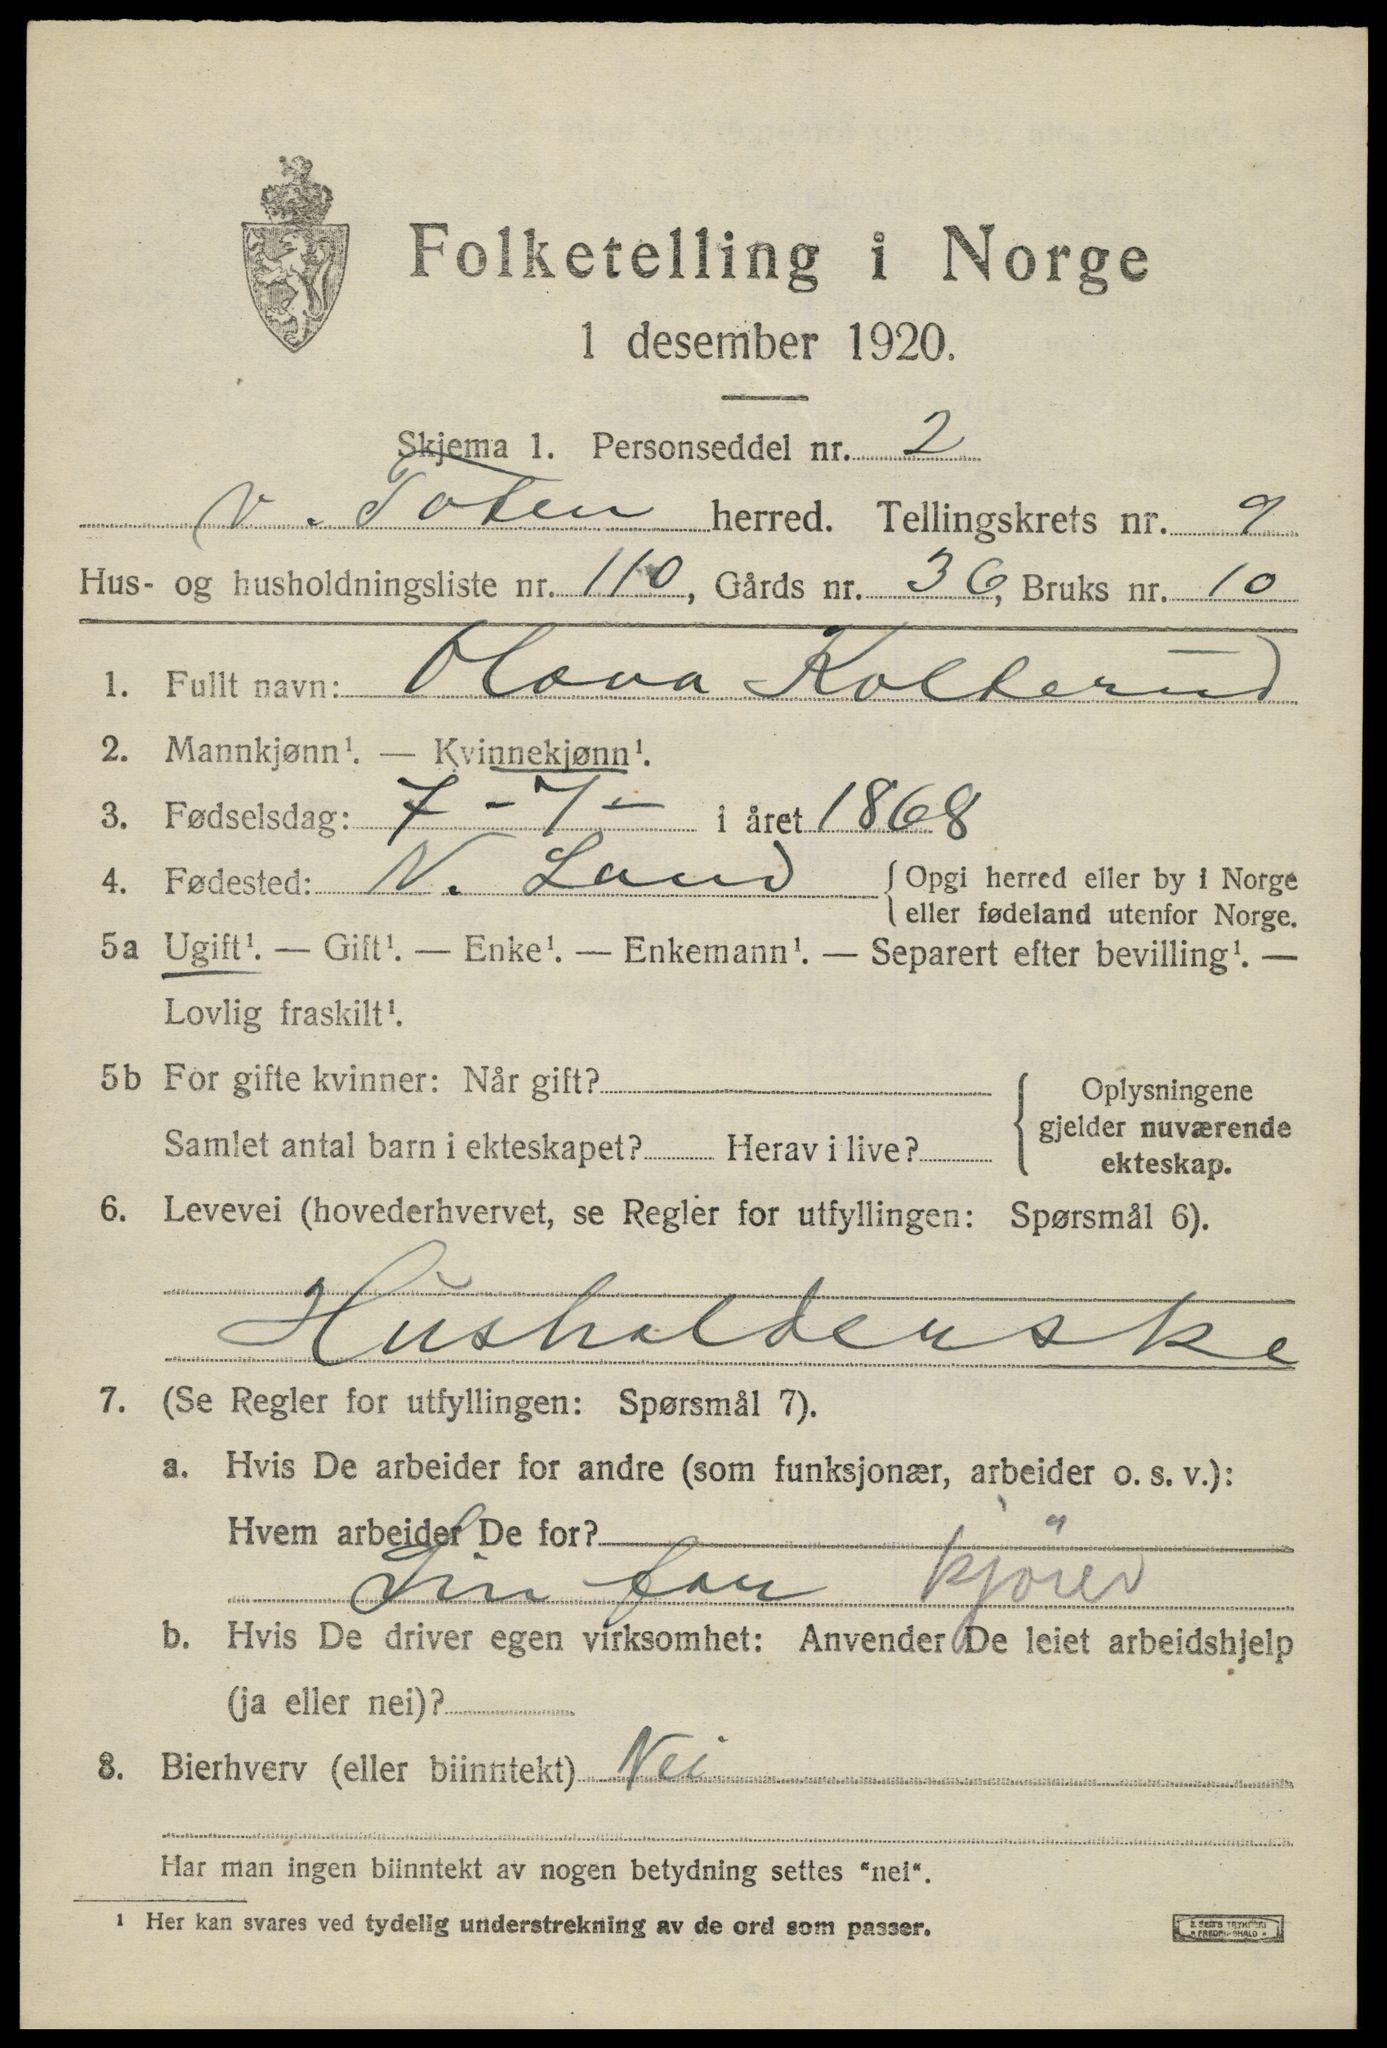 Folketelling i Norge
1 desember 1920.
Skjema 1. Personseddel nr. 2
V. Toten herred. Tellingskrets nr. 9
Hus- og husholdningsliste nr. 110, Gårds nr. 36, Bruks nr. 10
1. Fullt navn: Olava Kolterud
2. Mannkjønn¹. — Kvinnekjønn¹.
3. Fødselsdag: 7 - 7 - i året 1868
4. Fødested: N. Land {Opgi herred eller by i Norge
eller fødeland utenfor Norge.
5a Ugift¹. — Gift¹. — Enke¹. — Enkemann¹. — Separert efter bevilling¹. —
Lovlig fraskilt¹.
5b For gifte kvinner: Når gift?
Samlet antal barn i ekteskapet? Herav i live?
{Oplysningene
gjelder nuværende
ekteskap.
6. Levevei (hovederhvervet, se Regler for utfyllingen: Spørsmål 6).
Husholderske
7. (Se Regler for utfyllingen: Spørsmål 7).
a. Hvis De arbeider for andre (som funksjonær, arbeider o. s. v.):
Hvem arbeider De for?
Sin far
b. Hvis De driver egen virksomhet: Anvender De leiet arbeidshjelp
(ja eller nei)?
8. Bierhverv (eller biinntekt) Nei
Har man ingen biinntekt av nogen betydning settes "nei".
¹ Her kan svares ved tydelig understrekning av de ord som passer.